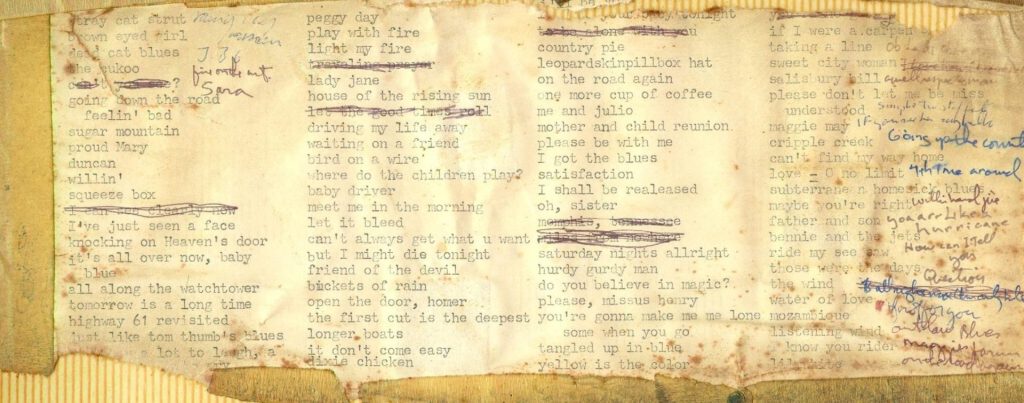 stray cat strut
brown eyed girl
dead cat blues
the cukoo
going down the road
feelin' bad
sugar mountain
proud Mary
duncan
willin'
squeeze box
I can see clearly now
I've just seen a face
knocking on Heaven's door
it's all over now, baby
blue
all along the watchtower
tomorrow is a long time
highway 61 revisited
just like tom thumb's blues
a lot to laugh, a
Sara
peggy day
play with fire
light my fire
traveling prayer
lady jane
house of the rising sun
let the good times roll
driving my life away
waiting on a friend
bird on a wire
where do the children play?
baby driver
meet me in the morning
let it bleed
can't always get what u want
but I might die tonight
friend of the devil
buckets of rain
open the door, homer
the first cut is the deepest
longer boats
it don't come easy
dixie chicken
your baby tonight
to be alone with you
country pie
leopardskinpillbox hat
on the road again
one more cup of coffee
me and julio
mother and child reunion
please be with me
I got the blues
satisfaction
I shall be realeased
oh, sister
memphis, tennessee
saturday nights allright
hurdy gurdy man
do you believe in magic?
please, missus henry
you're gonna make me me lone
some when you go
tangled up in blue
yellow is the color
if I were a carpen
taking a line
sweet city woman
salisbury hill
please don't let me be miss
understood
maggie may
cripple creek
Going up the count
can't find my way home
love - 0 no limit
4th time around
subterranean homesick blue
maybe you're right
father and son
bennie and the jets
ride my see saw
those were the days
the wind
water of love
mozambique
listening wind
know you rider
willin hand jive
you are like a
hurricane
How can I tell
you
Question